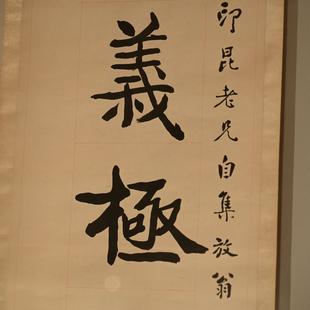 印昆老兄自集放翁
義極